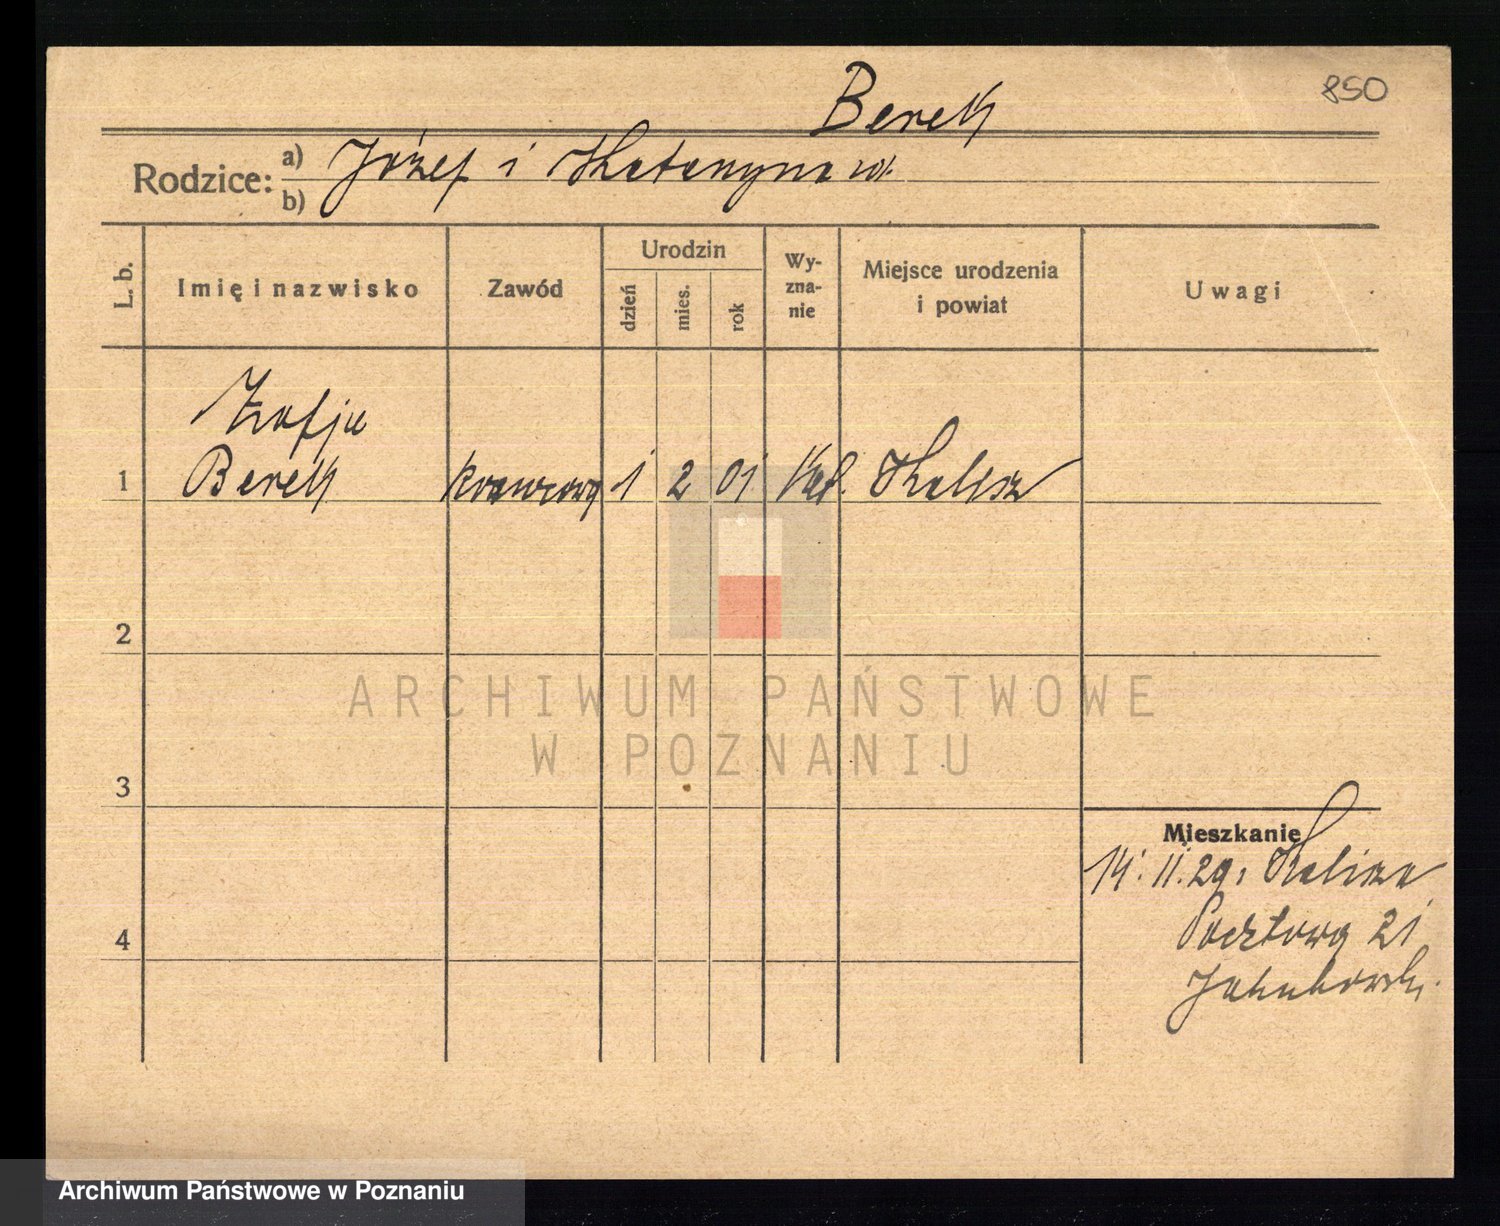 Berek
850
Rodzice: a) Józef i Katarzyna rod.
b)
L. b.
Imię i nazwisko
Zawód
Urodzin
dzień
mies.
rok
Wy-
zna-
nie
Miejsce urodzenia
i powiat
Uwagi
Zofja
1 Berek krawcowa 1 2 01 Kat. Kalisz
2
3
4
Mieszkanie
14. II. 29. Kalisza
Pocztowa 21
ARCHIWUM PAŃSTWOWE
W POZNANIU
Archiwum Państwowe w Poznaniu